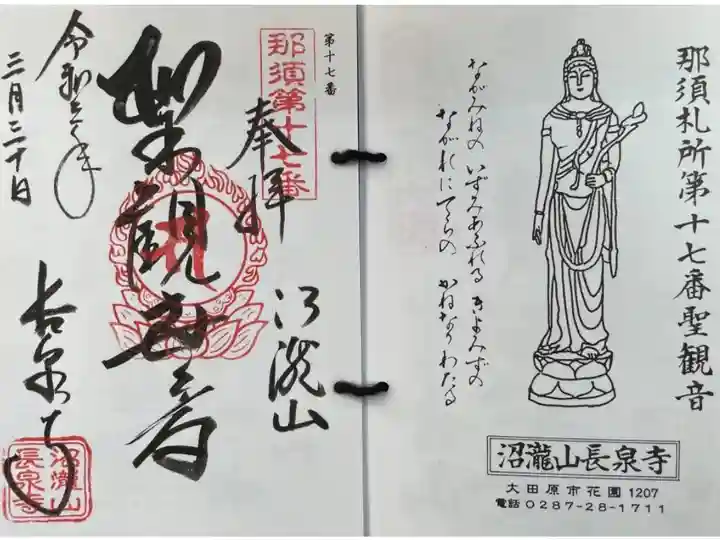 那須札所第十七番聖観音
ながみねの いずみあふれる きよみずの
ながれにてらの かねなりわたる
沼瀧山長泉寺
大田原市花園1207
電話0287-28-1711
第十七番
那須第十七番
奉拝
沼瀧山
聖観世音
令和六年
三月三十日
長泉寺
沼瀧山
長泉寺